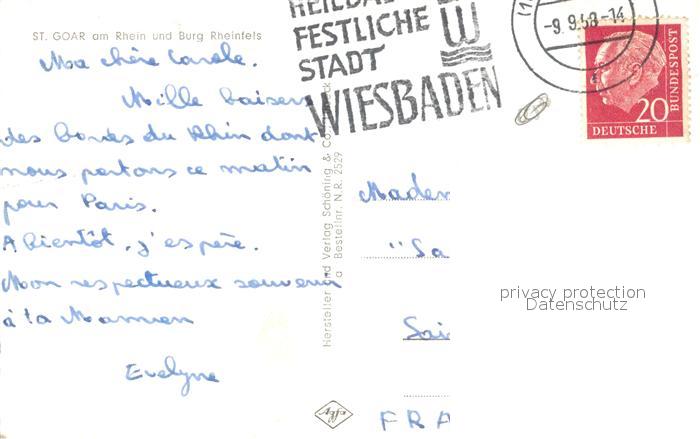 ST. GOAR am Rhein und Burg Rheinfels
Ma chère Carole.
Mille baisers
des bords du Rhin dont
nous partons ce matin
pour Paris.
A bientôt, j'espère.
Mon respectueux souvenir
à ta Maman
Evelyne
Hersteller und Verlag Schöning & Co.,
Bestellnr. N.R. 2529
HEILBAD
FESTLICHE
STADT
WIESBADEN
-9.9.58-14
20
DEUTSCHE BUNDESPOST
Madem
"Sa
Sai
FRA
privacy protection
Datenschutz